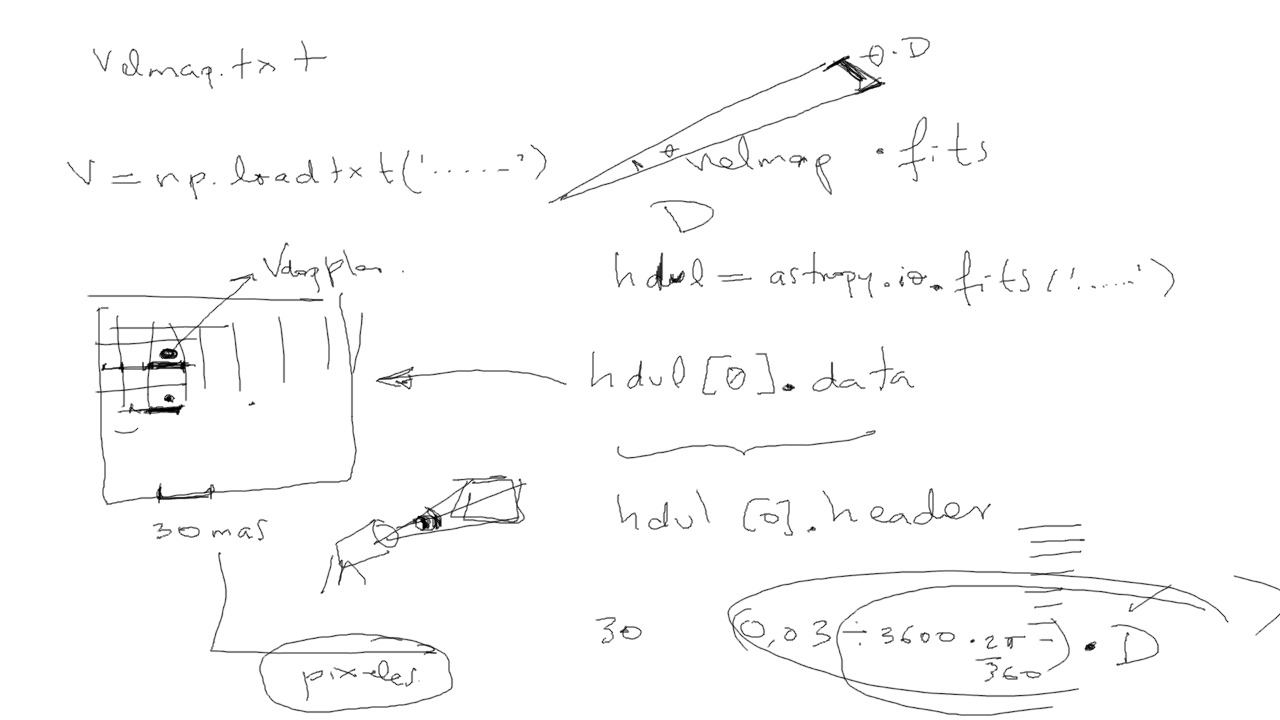 velmap.txt
θ·D
V = np.loadtxt('.....')
θ
velmap .fits
D
Vdoppler.
hdul = astropy.io.fits('.....')
hdul[0].data
hdul[0].header
30 mas
30
0,03 ÷ 3600 · 2π/360 · D
pixeles